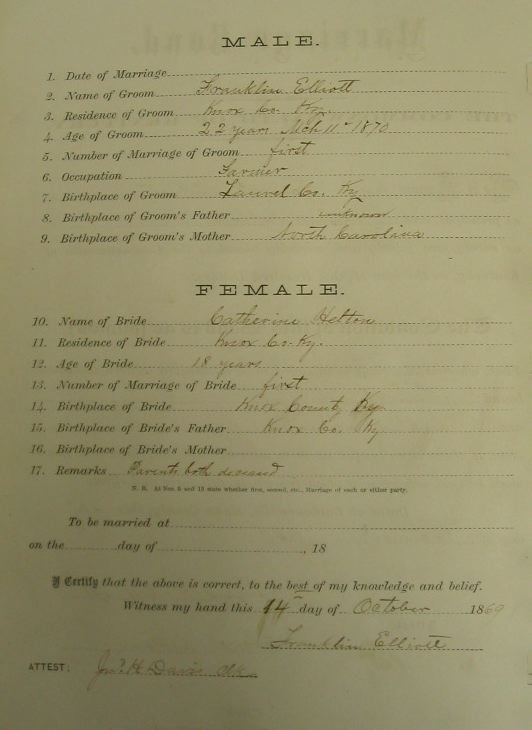 MALE.
1. Date of Marriage
2. Name of Groom Franklin Elliott
3. Residence of Groom Knox Co. Ky.
4. Age of Groom 22 years Mch 11th 1870
5. Number of Marriage of Groom first
6. Occupation Farmer
7. Birthplace of Groom Laurel Co. Ky
8. Birthplace of Groom's Father unknown
9. Birthplace of Groom's Mother North Carolina
FEMALE.
10. Name of Bride Catherine Helton
11. Residence of Bride Knox Co. Ky.
12. Age of Bride 18 years
13. Number of Marriage of Bride first
14. Birthplace of Bride Knox County Ky.
15. Birthplace of Bride's Father Knox Co. Ky
16. Birthplace of Bride's Mother
17. Remarks Parents both deceased
N. B. At Nos. 5 and 13 state whether first, second, etc., Marriage of each or either party.
To be married at
on the day of , 18
I Certify that the above is correct, to the best of my knowledge and belief.
Witness my hand this 14th day of October 1869
Franklin Elliott
ATTEST: Jno. H. Davis